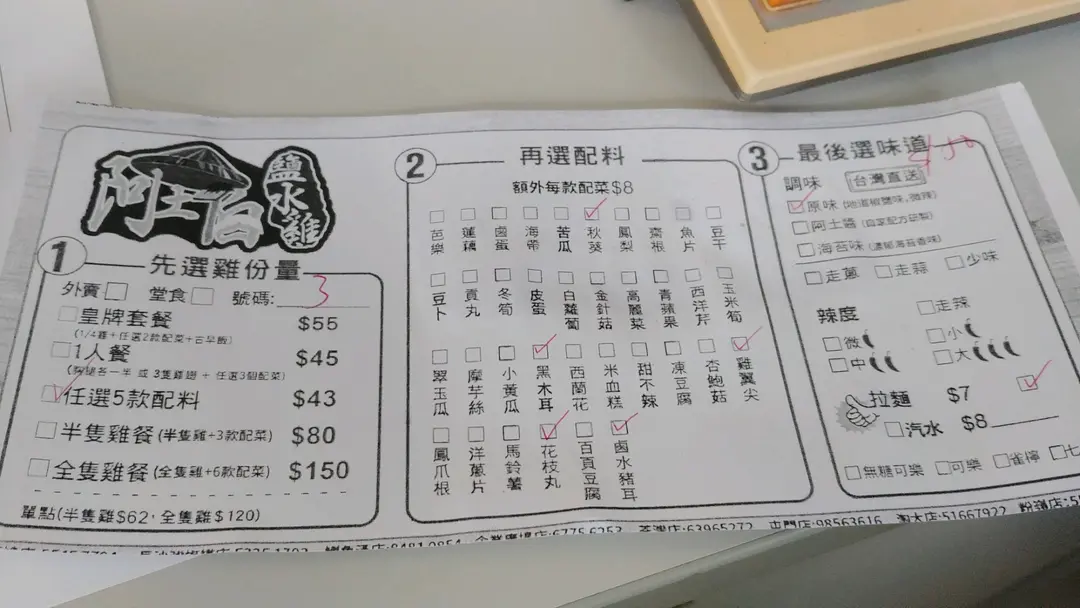 阿土伯
鹽水雞
1 先選雞份量
外賣 堂食 號碼: 3
皇牌套餐 $55
(1/4雞+任選2款配菜+古早飯)
1人餐 $45
任選5款配料 $43
半隻雞餐 (半隻雞+3款配菜) $80
全隻雞餐 (全隻雞+6款配菜) $150
單點(半隻雞$62,全隻雞$120)
2 再選配料
額外每款配菜$8
芭樂 蓮藕 鹵蛋 海帶 苦瓜 秋葵 鳳梨 齋根 魚片 豆干
豆卜 貢丸 冬筍 皮蛋 白蘿蔔 金針菇 高麗菜 青蘋果 西洋芹 玉米筍
翠玉瓜 摩芋絲 小黃瓜 黑木耳 西蘭花 米血糕 甜不辣 凍豆腐 杏鮑菇 雞翼尖
鳳爪根 洋蔥片 馬鈴薯 花枝丸 百頁豆腐 鹵水豬耳
3 最後選味道
調味 台灣直送
原味 (地道椒鹽味,微辣)
阿土醬 (自家配方研製)
海苔味 (濃郁海苔香味)
走蔥 走蒜 少味
辣度 走辣
微 小
中 大
拉麵 $7
汽水 $8
無糖可樂 可樂 雀檸 七
荃灣店:63965272 屯門店:98563616 淘大店:51667922 粉嶺店: